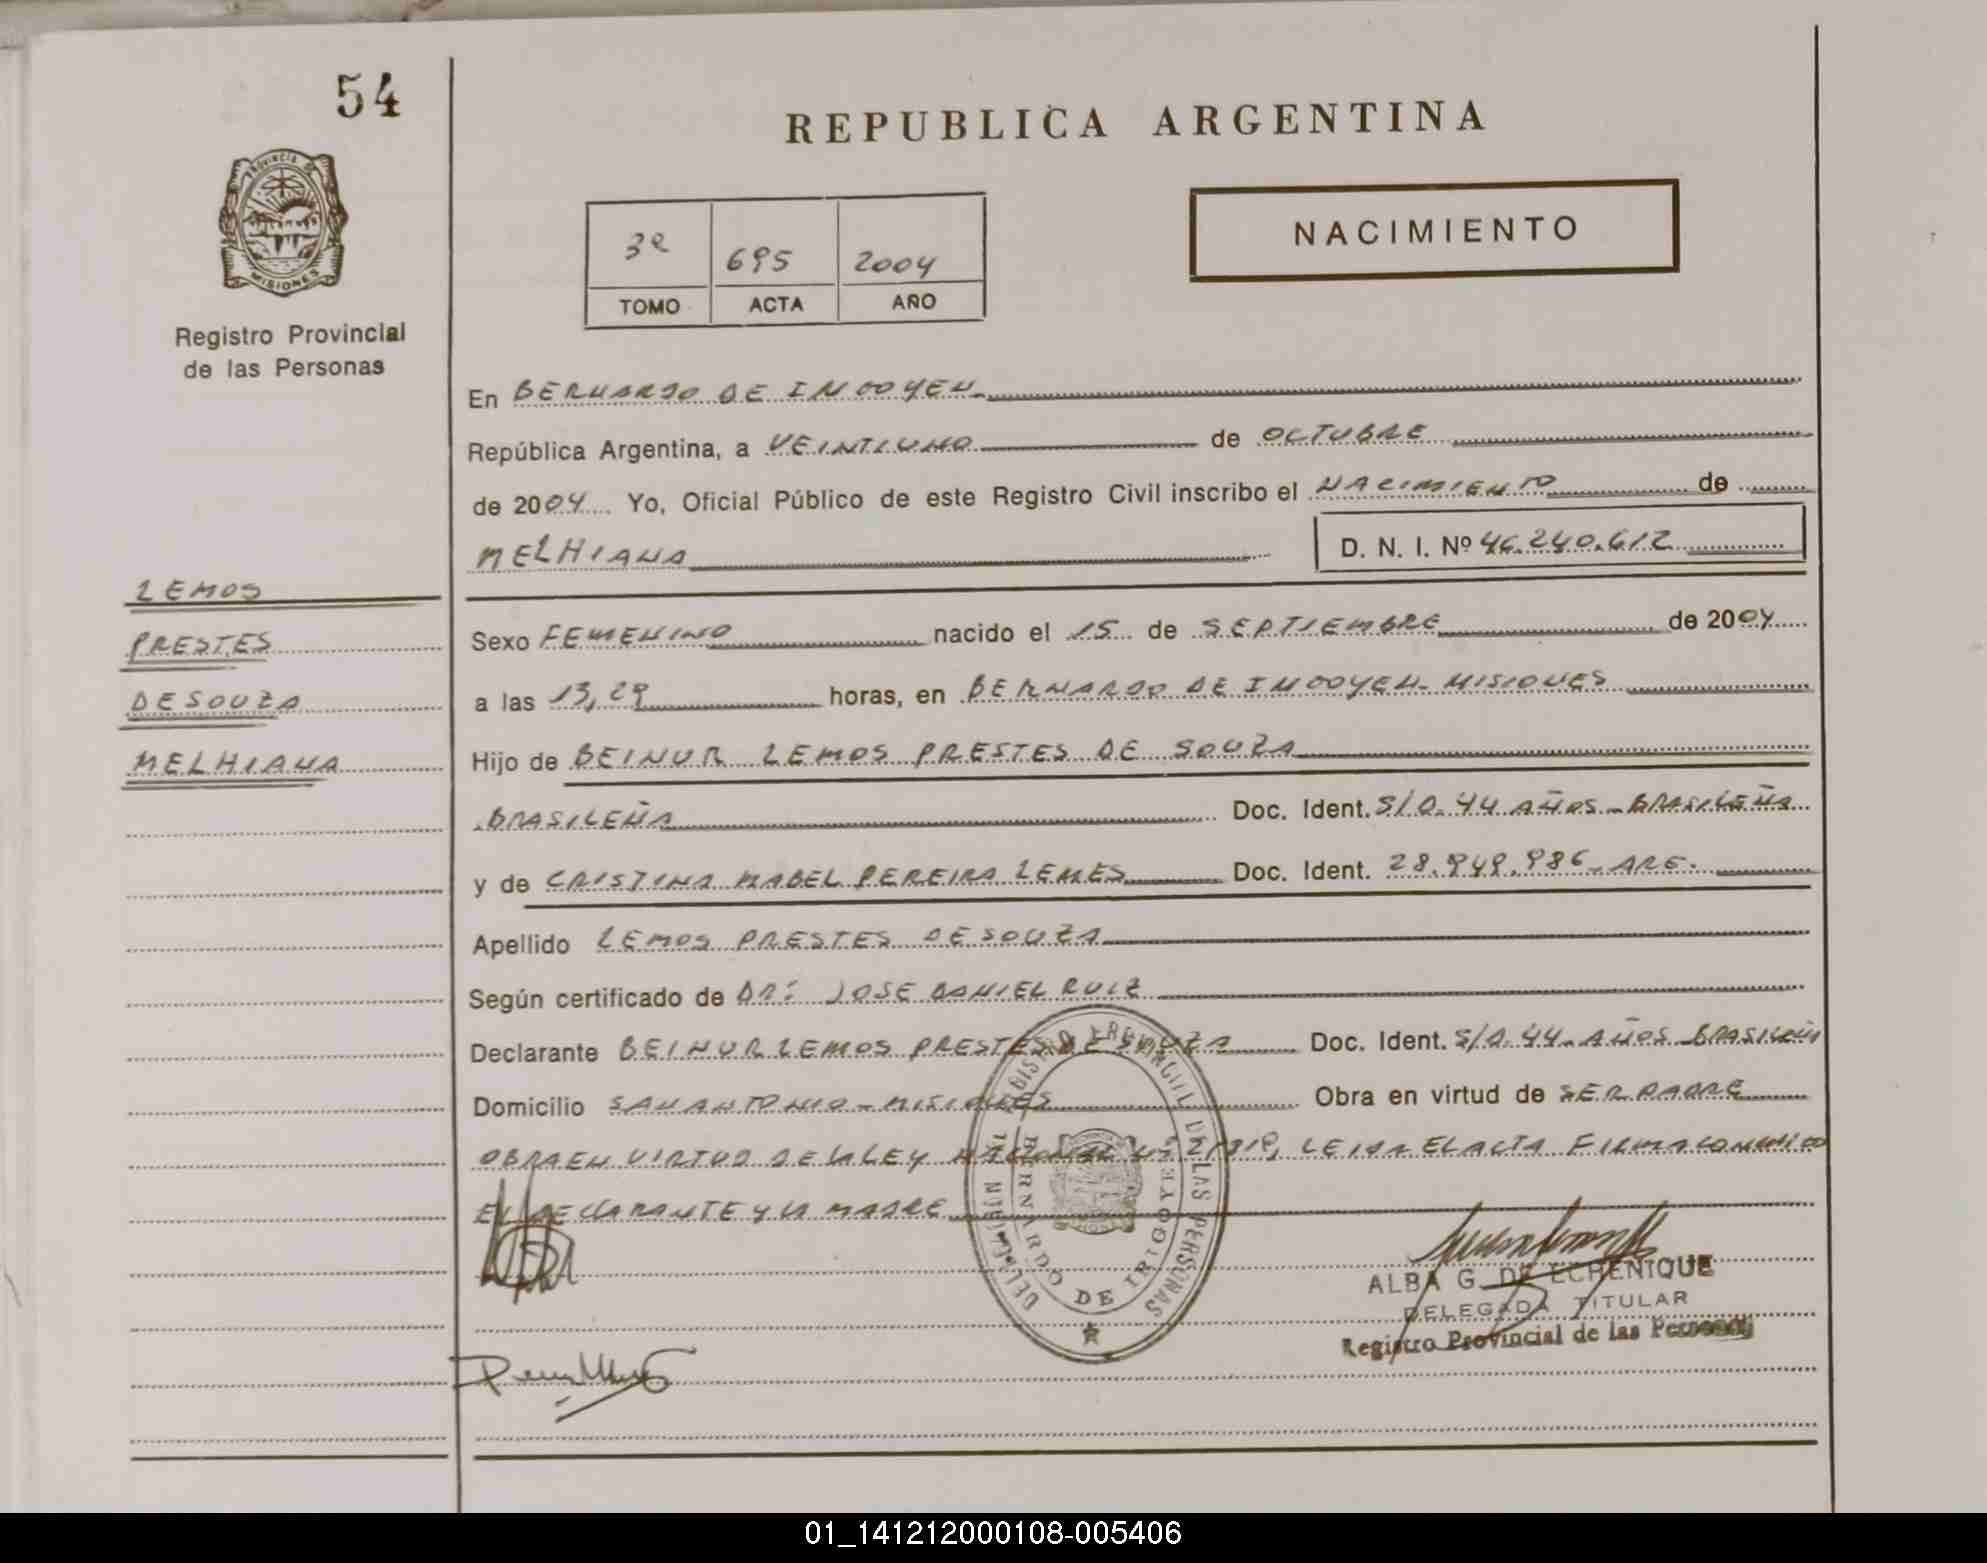 54
REPUBLICA ARGENTINA
PROVINCIA DE
MISIONES
Registro Provincial
de las Personas
3º 695 2004
TOMO ACTA AÑO
NACIMIENTO
En BERNARDO DE IRIGOYEN
República Argentina, a VEINTIUNO de OCTUBRE
de 2004 Yo, Oficial Público de este Registro Civil inscribo el NACIMIENTO de
MELHIANA D. N. I. Nº 46.240.612
LEMOS
PRESTES
DE SOUZA
MELHIANA
Sexo FEMENINO nacido el 15 de SEPTIEMBRE de 2004
a las 13,29 horas, en BERNARDO DE IRIGOYEN - MISIONES
Hijo de BEINUR LEMOS PRESTES DE SOUZA
BRASILEÑA Doc. Ident. S/D. 44 AÑOS - BRASILEÑA
y de CRISTINA MABEL PEREIRA LEMES Doc. Ident. 28.949.986 - ARG.
Apellido LEMOS PRESTES DE SOUZA
Según certificado de DR: JOSE DANIEL RUIZ
Declarante BEINUR LEMOS PRESTES DE SOUZA Doc. Ident. S/D. 44 - AÑOS - BRASILEÑ
Domicilio SAN ANTONIO - MISIONES Obra en virtud de SER PADRE
OBRA EN VIRTUD DE LA LEY NACIONAL Nº LEIDA EL ACTA FIRMA CONMIGO
EL DECLARANTE Y LA MADRE
REGISTRO PROVINCIAL DE LAS PERSONAS
BERNARDO DE IRIGOYEN
ALBA G. DE ECHENIQUE
DELEGADA TITULAR
Registro Provincial de las Personas
01_141212000108-005406